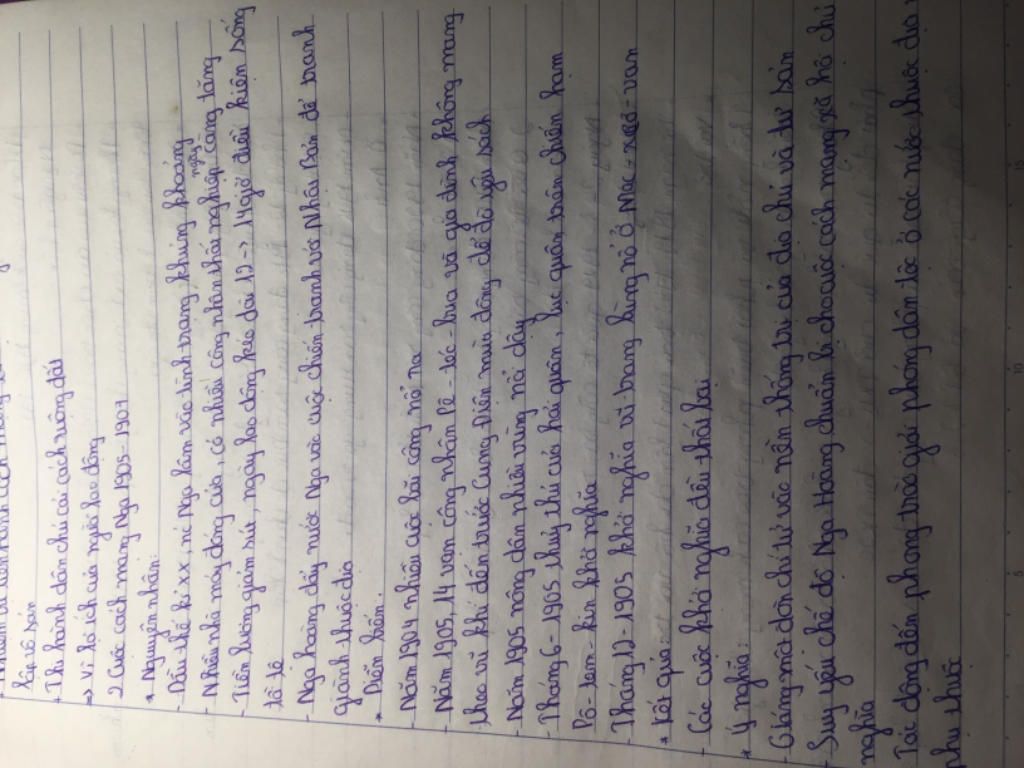 lập tô sản
+ Thi hành dân chủ cải cách ruộng đất
=> Vì lợi ích của người lao động
2 Cuộc cách mạng Nga 1905-1907
* Nguyên nhân:
- Đầu thế kỉ XX, nc Nga lâm vào tình trạng khủng hoảng
- Nhiều nhà máy đóng cửa, có nhiều công nhân thất nghiệp ngày càng tăng
- Tiền lương giảm sút, ngày lao động kéo dài 12 -> 14 giờ điều kiện sống
tồi tệ
- Nga hoàng đẩy nước Nga vào cuộc chiến tranh với Nhật Bản để tranh
giành thuộc địa
* Diễn biến.
- Năm 1904 nhiều cuộc bãi công nổ ra
- Năm 1905, 14 vạn công nhân Pê-téc-bua và gia đình không mang
theo vũ khí đến trước Cung Điện mùa đông để đưa yêu sách
- Năm 1905 nông dân nhiều vùng nổ dậy
- Tháng 6-1905 thuỷ thủ của hải quân, lục quân trên chiến hạm
Pô-tem-kin khởi nghĩa
- Tháng 12-1905 khởi nghĩa vũ trang bùng nổ ở Mac-xcơ-va
* Kết quả
- Các cuộc khởi nghĩa đều thất bại
* Ý nghĩa:
- Giáng một đòn chí tử vào nền thống trị của địa chủ và tư sản
- Suy yếu chế độ Nga Hoàng chuẩn bị cho cuộc cách mạng xã hội chủ
nghĩa
Tác động đến phong trào giải phóng dân tộc ở các nước thuộc địa
phụ thuộc